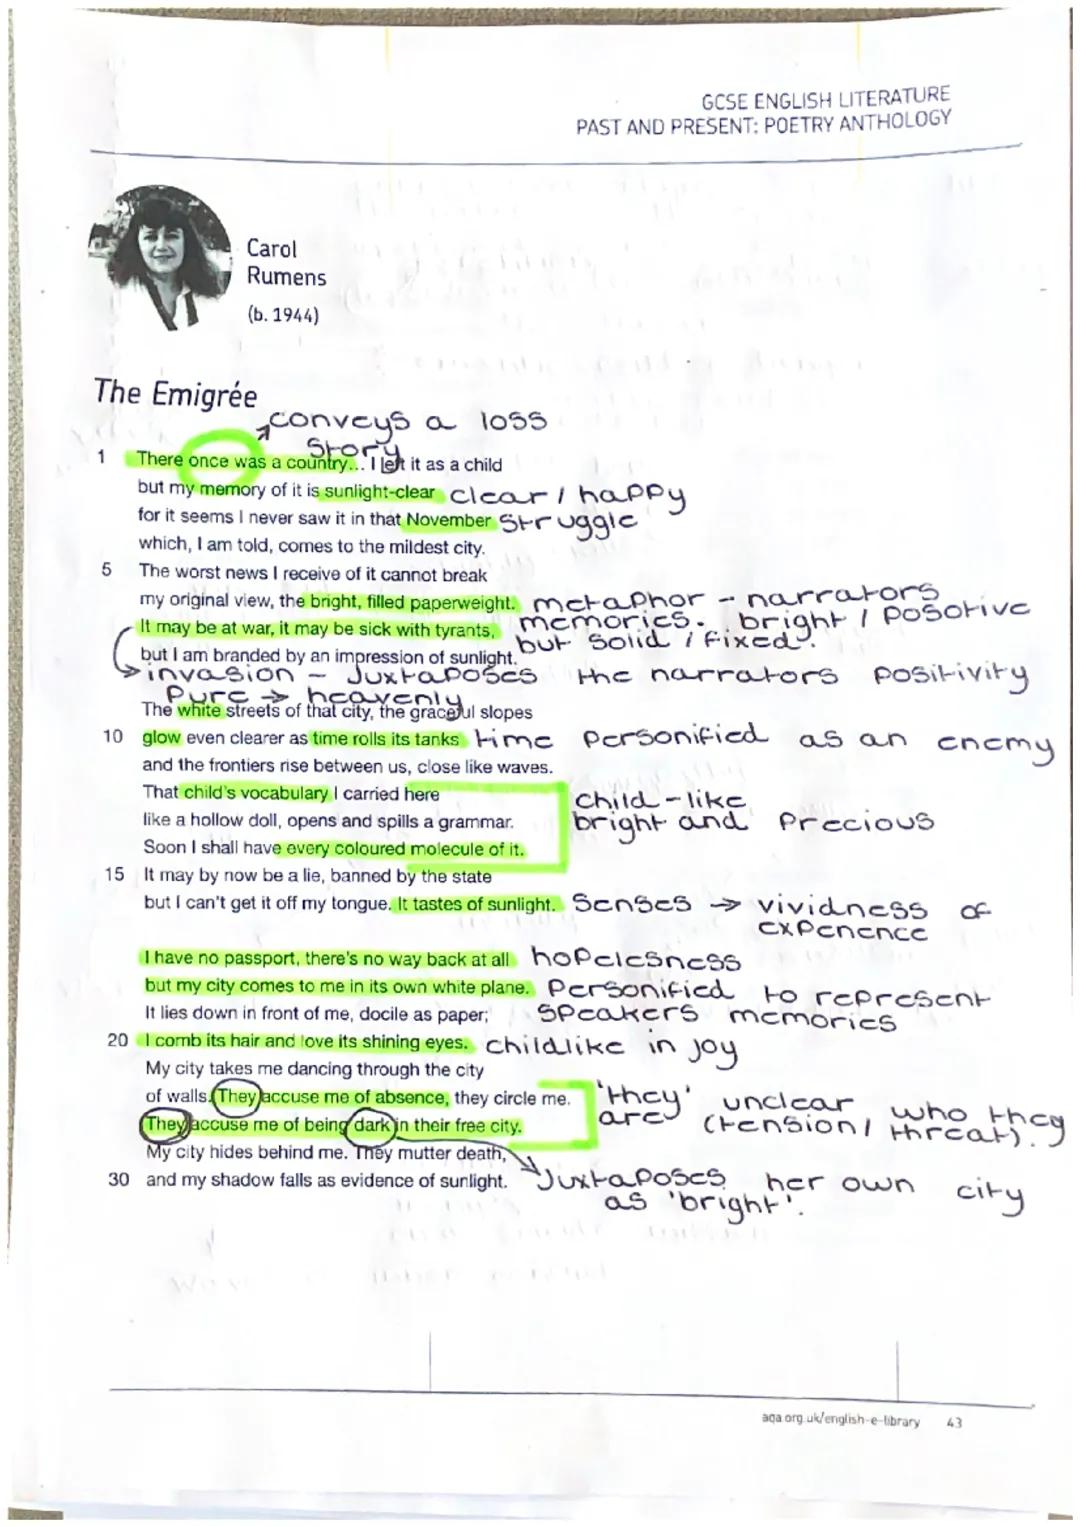 GCSE ENGLISH LITERATURE
PAST AND PRESENT: POETRY ANTHOLOGY
Carol
Rumens
(b. 1944)
The Emigrée
conveys a loss
Story
1 There once was a country... I left it as a child
but my memory of it is sunlight-clear clear / happy
for it seems I never saw it in that November Struggle
which, I am told, comes to the mildest city.
5 The worst news I receive of it cannot break
my original view, the bright, filled paperweight. metaphor - narrators
It may be at war, it may be sick with tyrants, memories. bright / Posotive
but I am branded by an impression of sunlight. but solid / fixed.
invasion - Juxtaposes the narrators positivity
Pure → heavenly
The white streets of that city, the graceful slopes
10 glow even clearer as time rolls its tanks time personified as an enemy
and the frontiers rise between us, close like waves.
That child's vocabulary I carried here child-like
like a hollow doll, opens and spills a grammar. bright and Precious
Soon I shall have every coloured molecule of it.
15 It may by now be a lie, banned by the state
but I can't get it off my tongue. It tastes of sunlight. Senses → vividness of
experience
I have no passport, there's no way back at all hopelesness
but my city comes to me in its own white plane. Personified to represent
It lies down in front of me, docile as paper; speakers memories
20 I comb its hair and love its shining eyes. childlike in joy
My city takes me dancing through the city
of walls. They accuse me of absence, they circle me. 'they' unclear who they
They accuse me of being dark in their free city. are (tension / threat).
My city hides behind me. They mutter death,
30 and my shadow falls as evidence of sunlight. Juxtaposes her own city
as 'bright'.
aqa.org.uk/english-e-library 43